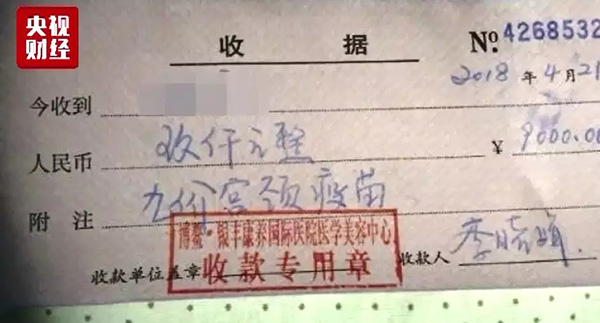 央视
财经
收 据 №4268532
2018 年 4 月 21
今收到
人民币 玖仟元整 ¥ 9000.00
附 注 九价宫颈疫苗
博鳌·银丰康养国际医院医学美容中心
收款单位盖章 收款专用章 收款人 李